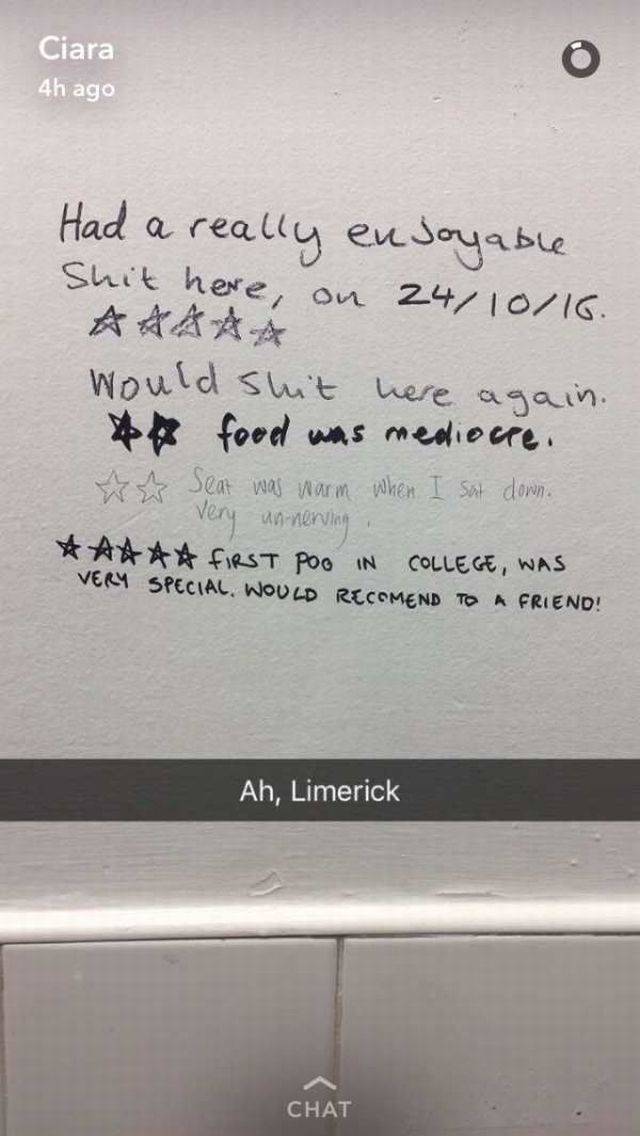 Ciara
4h ago
Had a really enjoyable
Shit here, on 24/10/16.
☆☆☆☆☆
Would shit here again.
★★ food was mediocre.
☆☆ Seat was warm when I sat down.
Very un-nerving.
★★★★★ FIRST POO IN COLLEGE, WAS
VERY SPECIAL. WOULD RECOMEND TO A FRIEND!
Ah, Limerick
CHAT